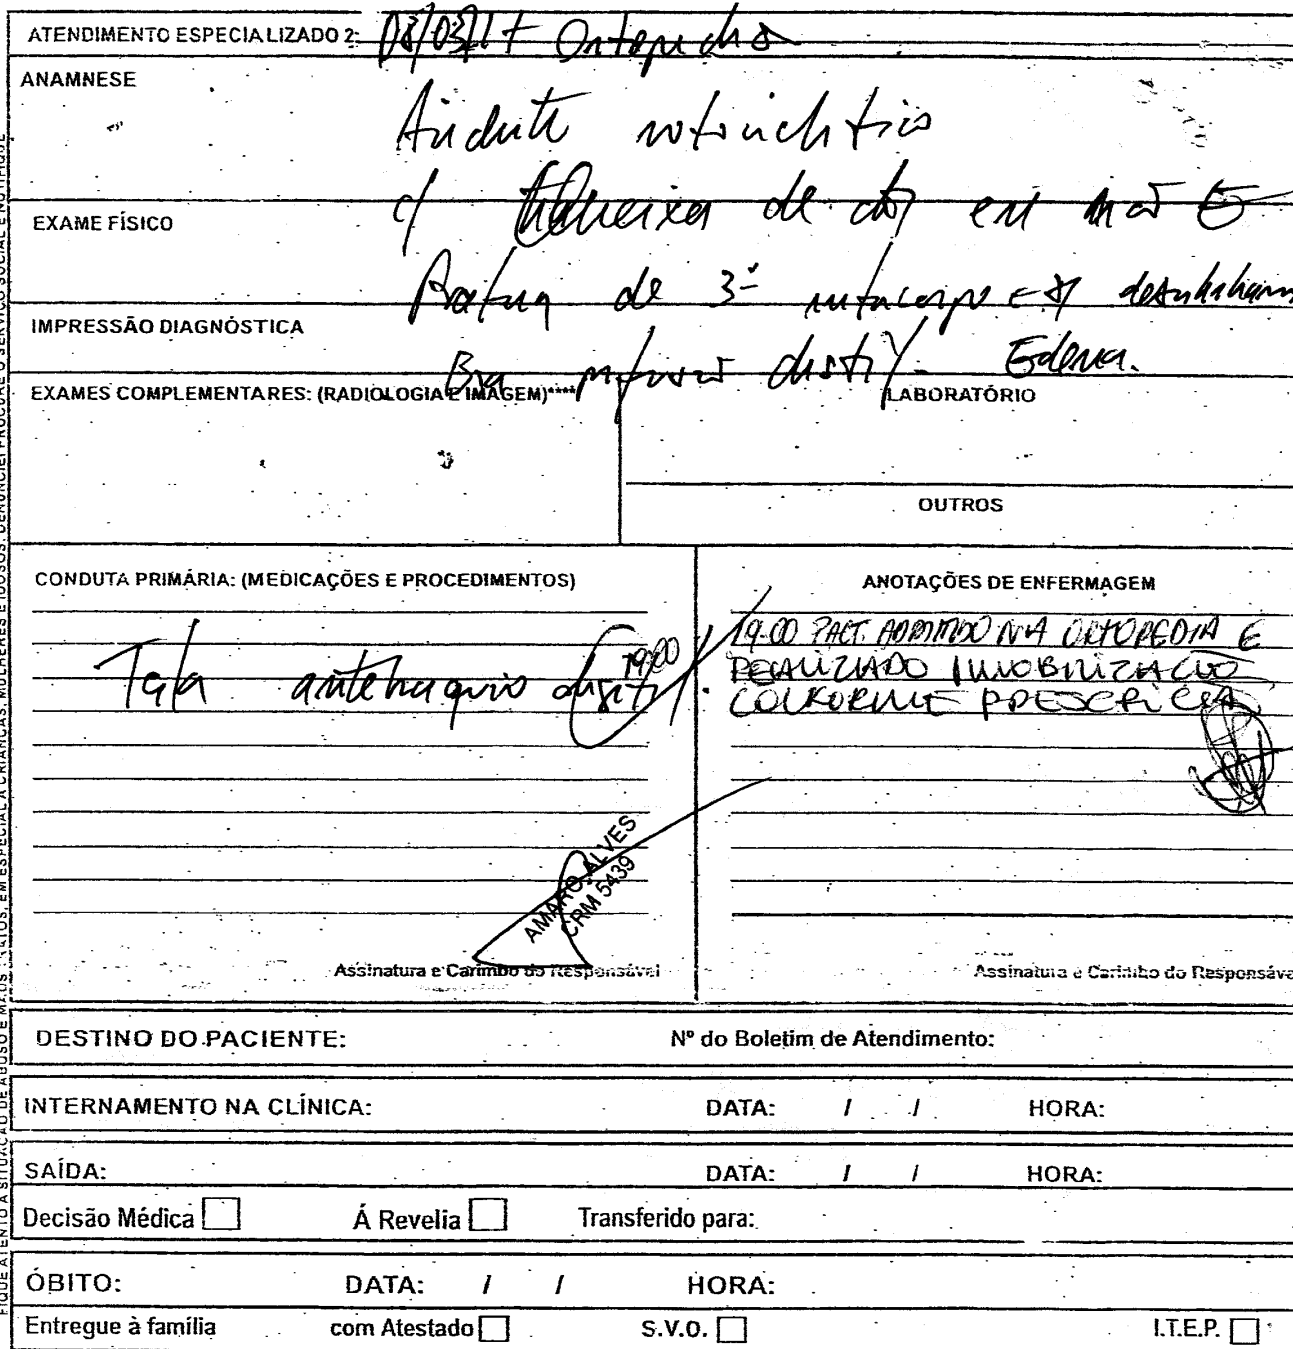 ATENDIMENTO ESPECIALIZADO 2: 08/03/17 Ortopedia
ANAMNESE
c/ queixa de dor em mão E
EXAME FÍSICO
Fratura de 3º metacarpo E
IMPRESSÃO DIAGNÓSTICA
Edema.
EXAMES COMPLEMENTARES: (RADIOLOGIA E IMAGEM)****
LABORATÓRIO
OUTROS
CONDUTA PRIMÁRIA: (MEDICAÇÕES E PROCEDIMENTOS)
Tala 19:00
AMARO ALVES
CRM 5439
Assinatura e Carimbo do Responsável
ANOTAÇÕES DE ENFERMAGEM
19:00 PACT. ADMITIDO NA ORTOPEDIA E
REALIZADO IMOBILIZAÇÃO
CONFORME PRESCRIÇÃO
Assinatura e Carimbo do Responsáve
DESTINO DO PACIENTE: Nº do Boletim de Atendimento:
INTERNAMENTO NA CLÍNICA: DATA: / / HORA:
SAÍDA: DATA: / / HORA:
Decisão Médica Á Revelia Transferido para:
ÓBITO: DATA: / / HORA:
Entregue à família com Atestado S.V.O. I.T.E.P.